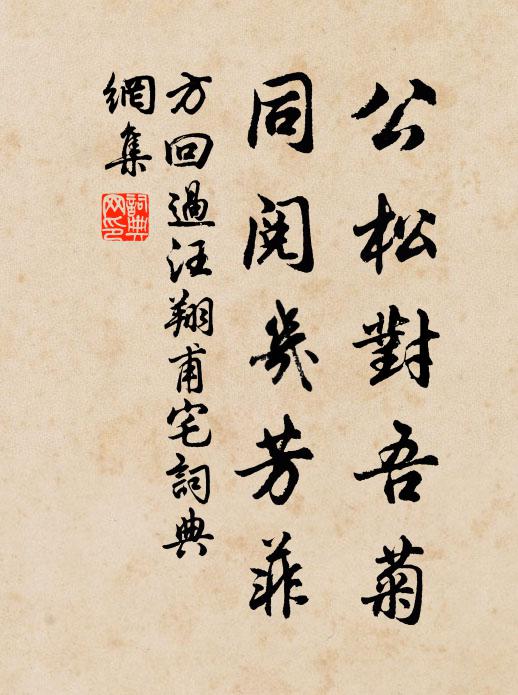 公松對吾菊
同閱幾芳菲
方回過汪翔甫宅詞典
網集
詞典
网印